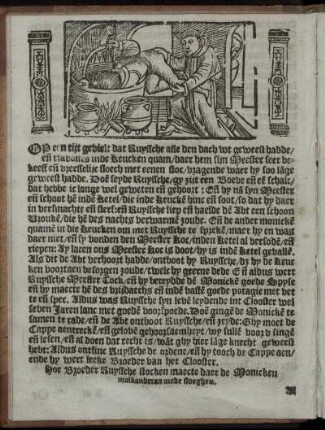 OP een tijt gebielt dat Ruyssche alle den dach wt geweest hadde,
eñ tsavonts inde Keucken quam / daer hem sijn Meester seer be-
keeff eñ vreesselijc sloech met eenen stoc / vragende waer hy soo läge
geweest hadde. Doē seyde Ruyssche / gy zijt een Boeve eñ eē schalc /
dat hebbe ic lange wel geweten eñ gehoort : Eñ hy nā sijn Meester
eñ schoot hē indē ketel / die inde keucke hinc eñ soot / so dat hy daer
in versmachte eñ sterf: eñ Ruyssche liep eñ haelde dē Abt een schoot
die hy des nachts verwarmē zoude. Eñ de ander monickē
quamē in die Keucken om met Ruyssche te sprekē / maer hy en was
daer niet / eñ sy vonden den Meester Koc / inden ketel al versodē / eñ
riepen: Ay lacen onse Meester koc is doot / hy is indē ketel gevallē.
Als dit de Abt verhoort hadde / onthoot hy Ruyssche / dz hy de keuc
ken voortaen besorgen zoude / twelc hy geerne dede Eñ aldus wert
Ruyssche Meester Cock / eñ hy bereydde dē Monickē goede Spyse
eñ hy maecte hē des vrijdaechs eñ indē vastē goede potagie met vet
te eñ spec. Aldus was Ruyssche sijn levē leydende int Clooster wel
seven Jaren lanc met goedē voorspoede. Doē gingē de Monickē te
samen te rade / eñ dē Abt onthoot Ruyssche / eñ zeyde: Ghy moet de
Cappe aentreckē / eñ gelovē gehoorsaemheyt / wy sullē voor v singē
eñ lesen / eñ al doen dat recht is / wāt ghy hier läge knecht geweest
hebt: Aldus ontfinc Ruyssche de ordene / eñ hy tooch de Cappe aen /
ende hy wert seekē Broeder van het Clooster.
Hoe Broeder Ruyssche stocken maecte daer de Monicken
malkanderen mede sloeghen.